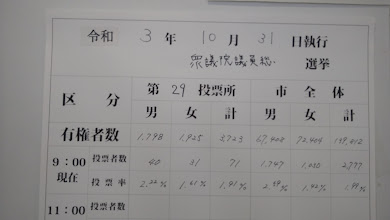 令和 3 年 10 月 31 日執行
衆議院議員総 選挙
区 分 第 29 投票所 市 全 体
男 女 計 男 女 計
有権者数 1,798 1,925 3,723 67,408 72,404 139,812
9：00 投票者数 40 31 71 1,747 1,030 2,777
現在 投 票 率 2.22% 1.61% 1.91% 2.59% 1.42% 1.99%
11：00 投票者数